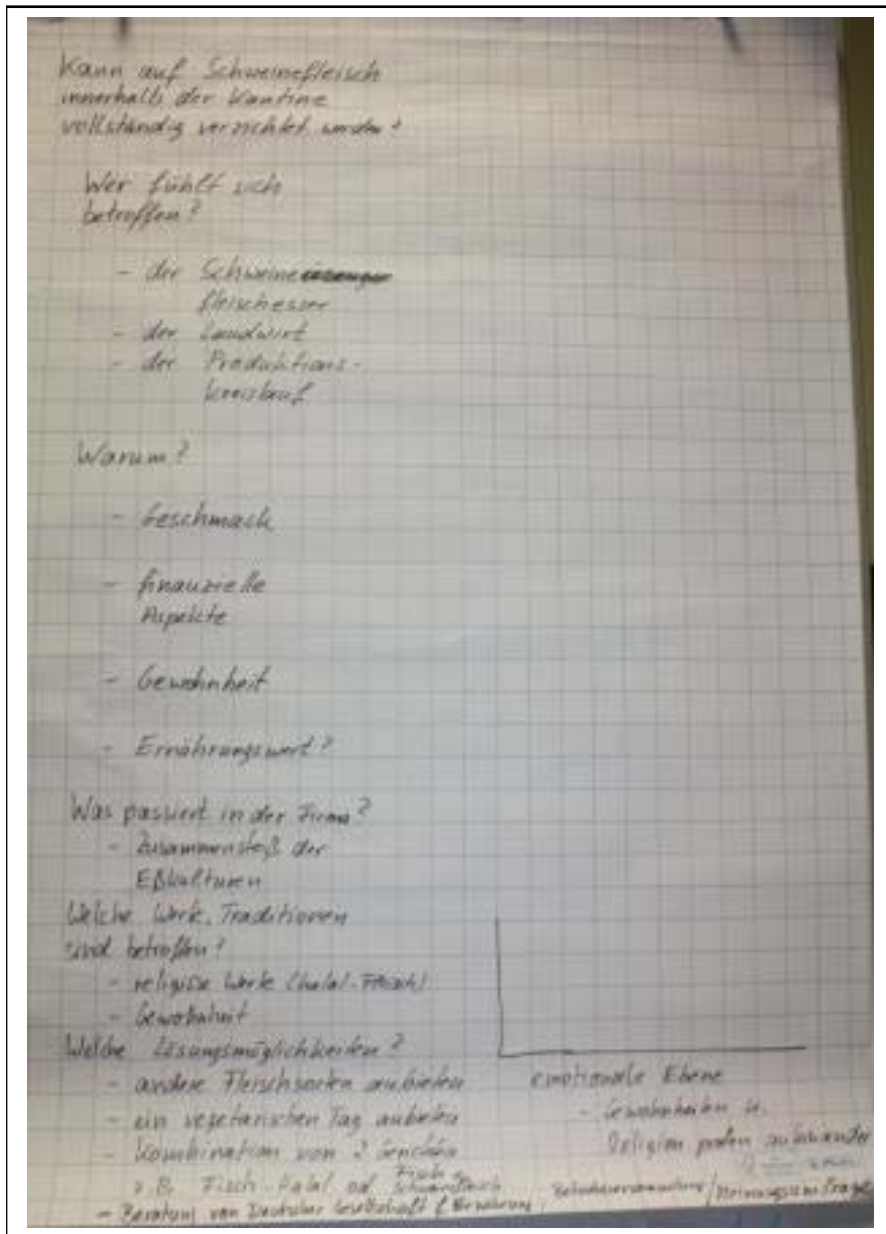 Kann auf Schweinefleisch
innerhalb der Kantine
vollständig verzichtet werden?
Wer fühlt sich
betroffen?
- der Schweine
fleischesser
- der Landwirt
- der Produktions-
kreislauf
Warum?
- Geschmack
- finanzielle
Aspekte
- Gewohnheit
- Ernährungswert?
Was passiert in der Firma?
- Zusammenstoß der
Eßkulturen
Welche Werte, Traditionen
sind betroffen?
- religiöse Werte (halal-Fleisch)
- Gewohnheit
Welche Lösungsmöglichkeiten?
- andere Fleischsorten anbieten
- ein vegetarischen Tag anbieten
- Kombination von 2 Gerichten
z.B. Fisch-Halal od. Fisch Schweinefleisch
- Beratung von Deutscher Gesellschaft f. Ernährung
emotionale Ebene
- Gewohnheiten u.
Religion prallen aufeinander
/ Meinungsumfrage